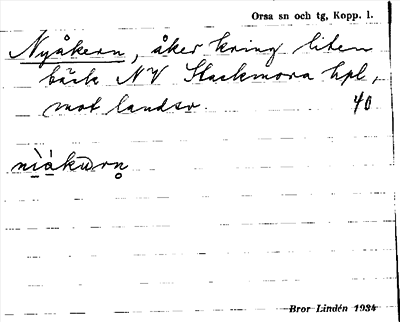 Orsa sn och tg, Kopp. l.
Nyåkern, åker kring liten
bäck NV Stackmora hpl,
mot landsv. 40
nìàkω̄rn̥
Bror Lindén 1934